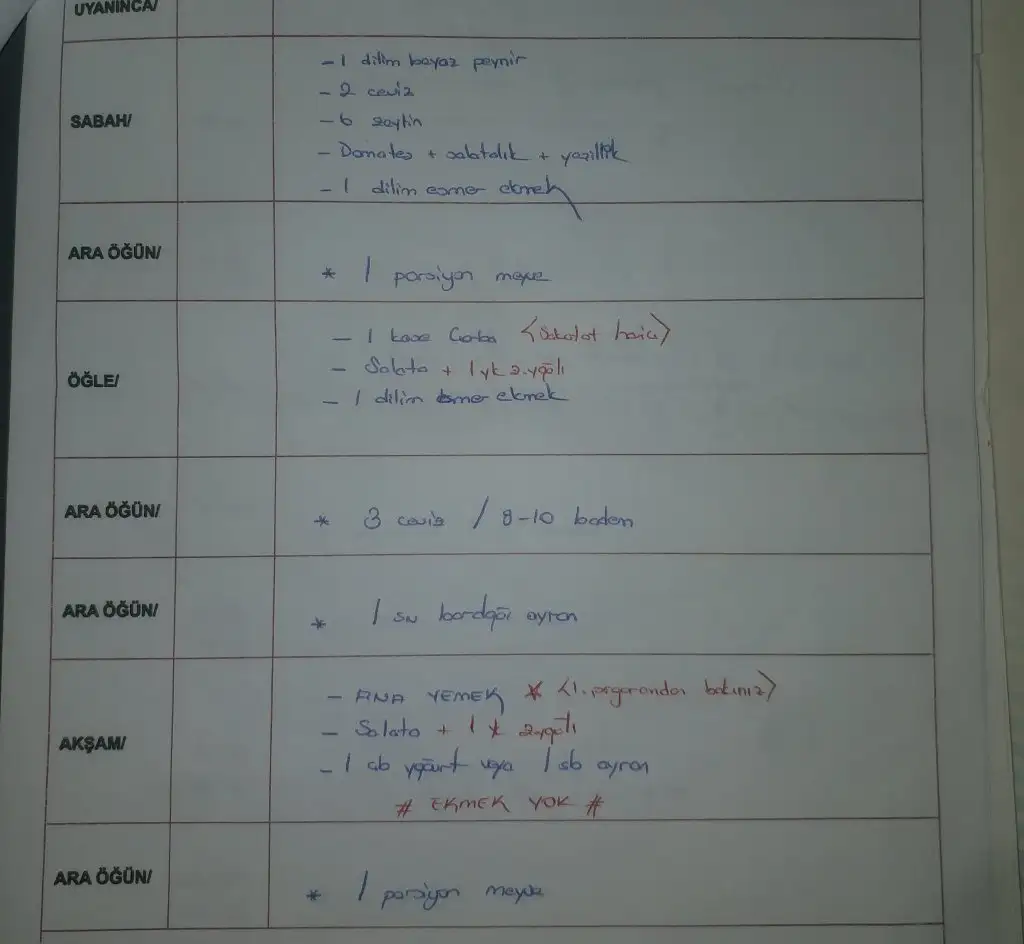 UYANINCA/
SABAH/
- 1 dilim beyaz peynir
- 2 ceviz
- 6 zeytin
- Domates + salatalık + yeşillik
- 1 dilim esmer ekmek
ARA ÖĞÜN/
* 1 porsiyon meyve
ÖĞLE/
- 1 kase Çorba <Şakolot hariç>
- Salata + 1 yk z.yağlı
- 1 dilim esmer ekmek
ARA ÖĞÜN/
* 3 ceviz / 8-10 badem
ARA ÖĞÜN/
* 1 su bardağı ayran
AKŞAM/
- ANA YEMEK * <1. programdan bakınız>
- Salata + 1 yk z.yağlı
- 1 çb yğurt veya 1 sb ayran
# EKMEK YOK #
ARA ÖĞÜN/
* 1 porsiyon meyve